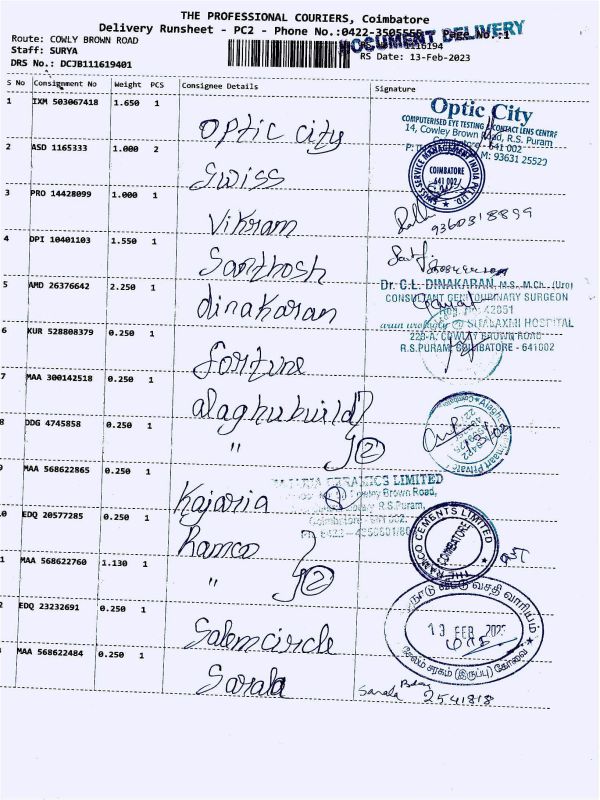 THE PROFESSIONAL COURIERS, Coimbatore
Delivery Runsheet - PC2 - Phone No.:0422-3505550 Page No.:1
DOCUMENT DELIVERY
Route: COWLY BROWN ROAD
1116194
Staff: SURYA
RS Date: 13-Feb-2023
DRS No.: DCJB111619401
S No Consignment No Weight PCS Consignee Details Signature
1 IXM 503067418 1.650 1 Optic city
Optic City
COMPUTERISED EYE TESTING & CONTACT LENS CENTRE
14, Cowley Brown Road, R.S. Puram
Coimbatore - 641 002
M: 93631 25529
2 ASD 1165333 1.000 2 Swiss
SWISS SERVICE MANAGEMENT INDIA PVT. LTD.
COIMBATORE
641 002
3 PRO 14428099 1.000 1 Vikram
9360318899
4 DPI 10401103 1.550 1 Santhosh
5 AMD 26376642 2.250 1 dinakaran
Dr. C.L. DINAKARAN, M.S., M.Ch., (Uro)
CONSULTANT GENITOURINARY SURGEON
Reg. No: 42851
HOSPITAL
220-A, COWLEY BROWN ROAD
R.S.PURAM, COIMBATORE - 641002
6 KUR 528808379 0.250 1 fortune
7 MAA 300142518 0.250 1 alaghu build
8 DDG 4745858 0.250 1 " 2
9 MAA 568622865 0.250 1 Kajaria
CERAMICS LIMITED
Cowley Brown Road,
R.S.Puram,
Coimbatore - 641 002.
10 EDQ 20577285 0.250 1 Ramco
THE RAMCO CEMENTS LIMITED
COIMBATORE
11 MAA 568622760 1.130 1 " 2
12 EDQ 23232691 0.250 1 Salem circle
வீட்டு வசதி வாரியம்
13 FEB 2023
சேலம் சரகம் (இருப்பு) கோவை
MAA 568622484 0.250 1 Sarala
Sarala
2541818